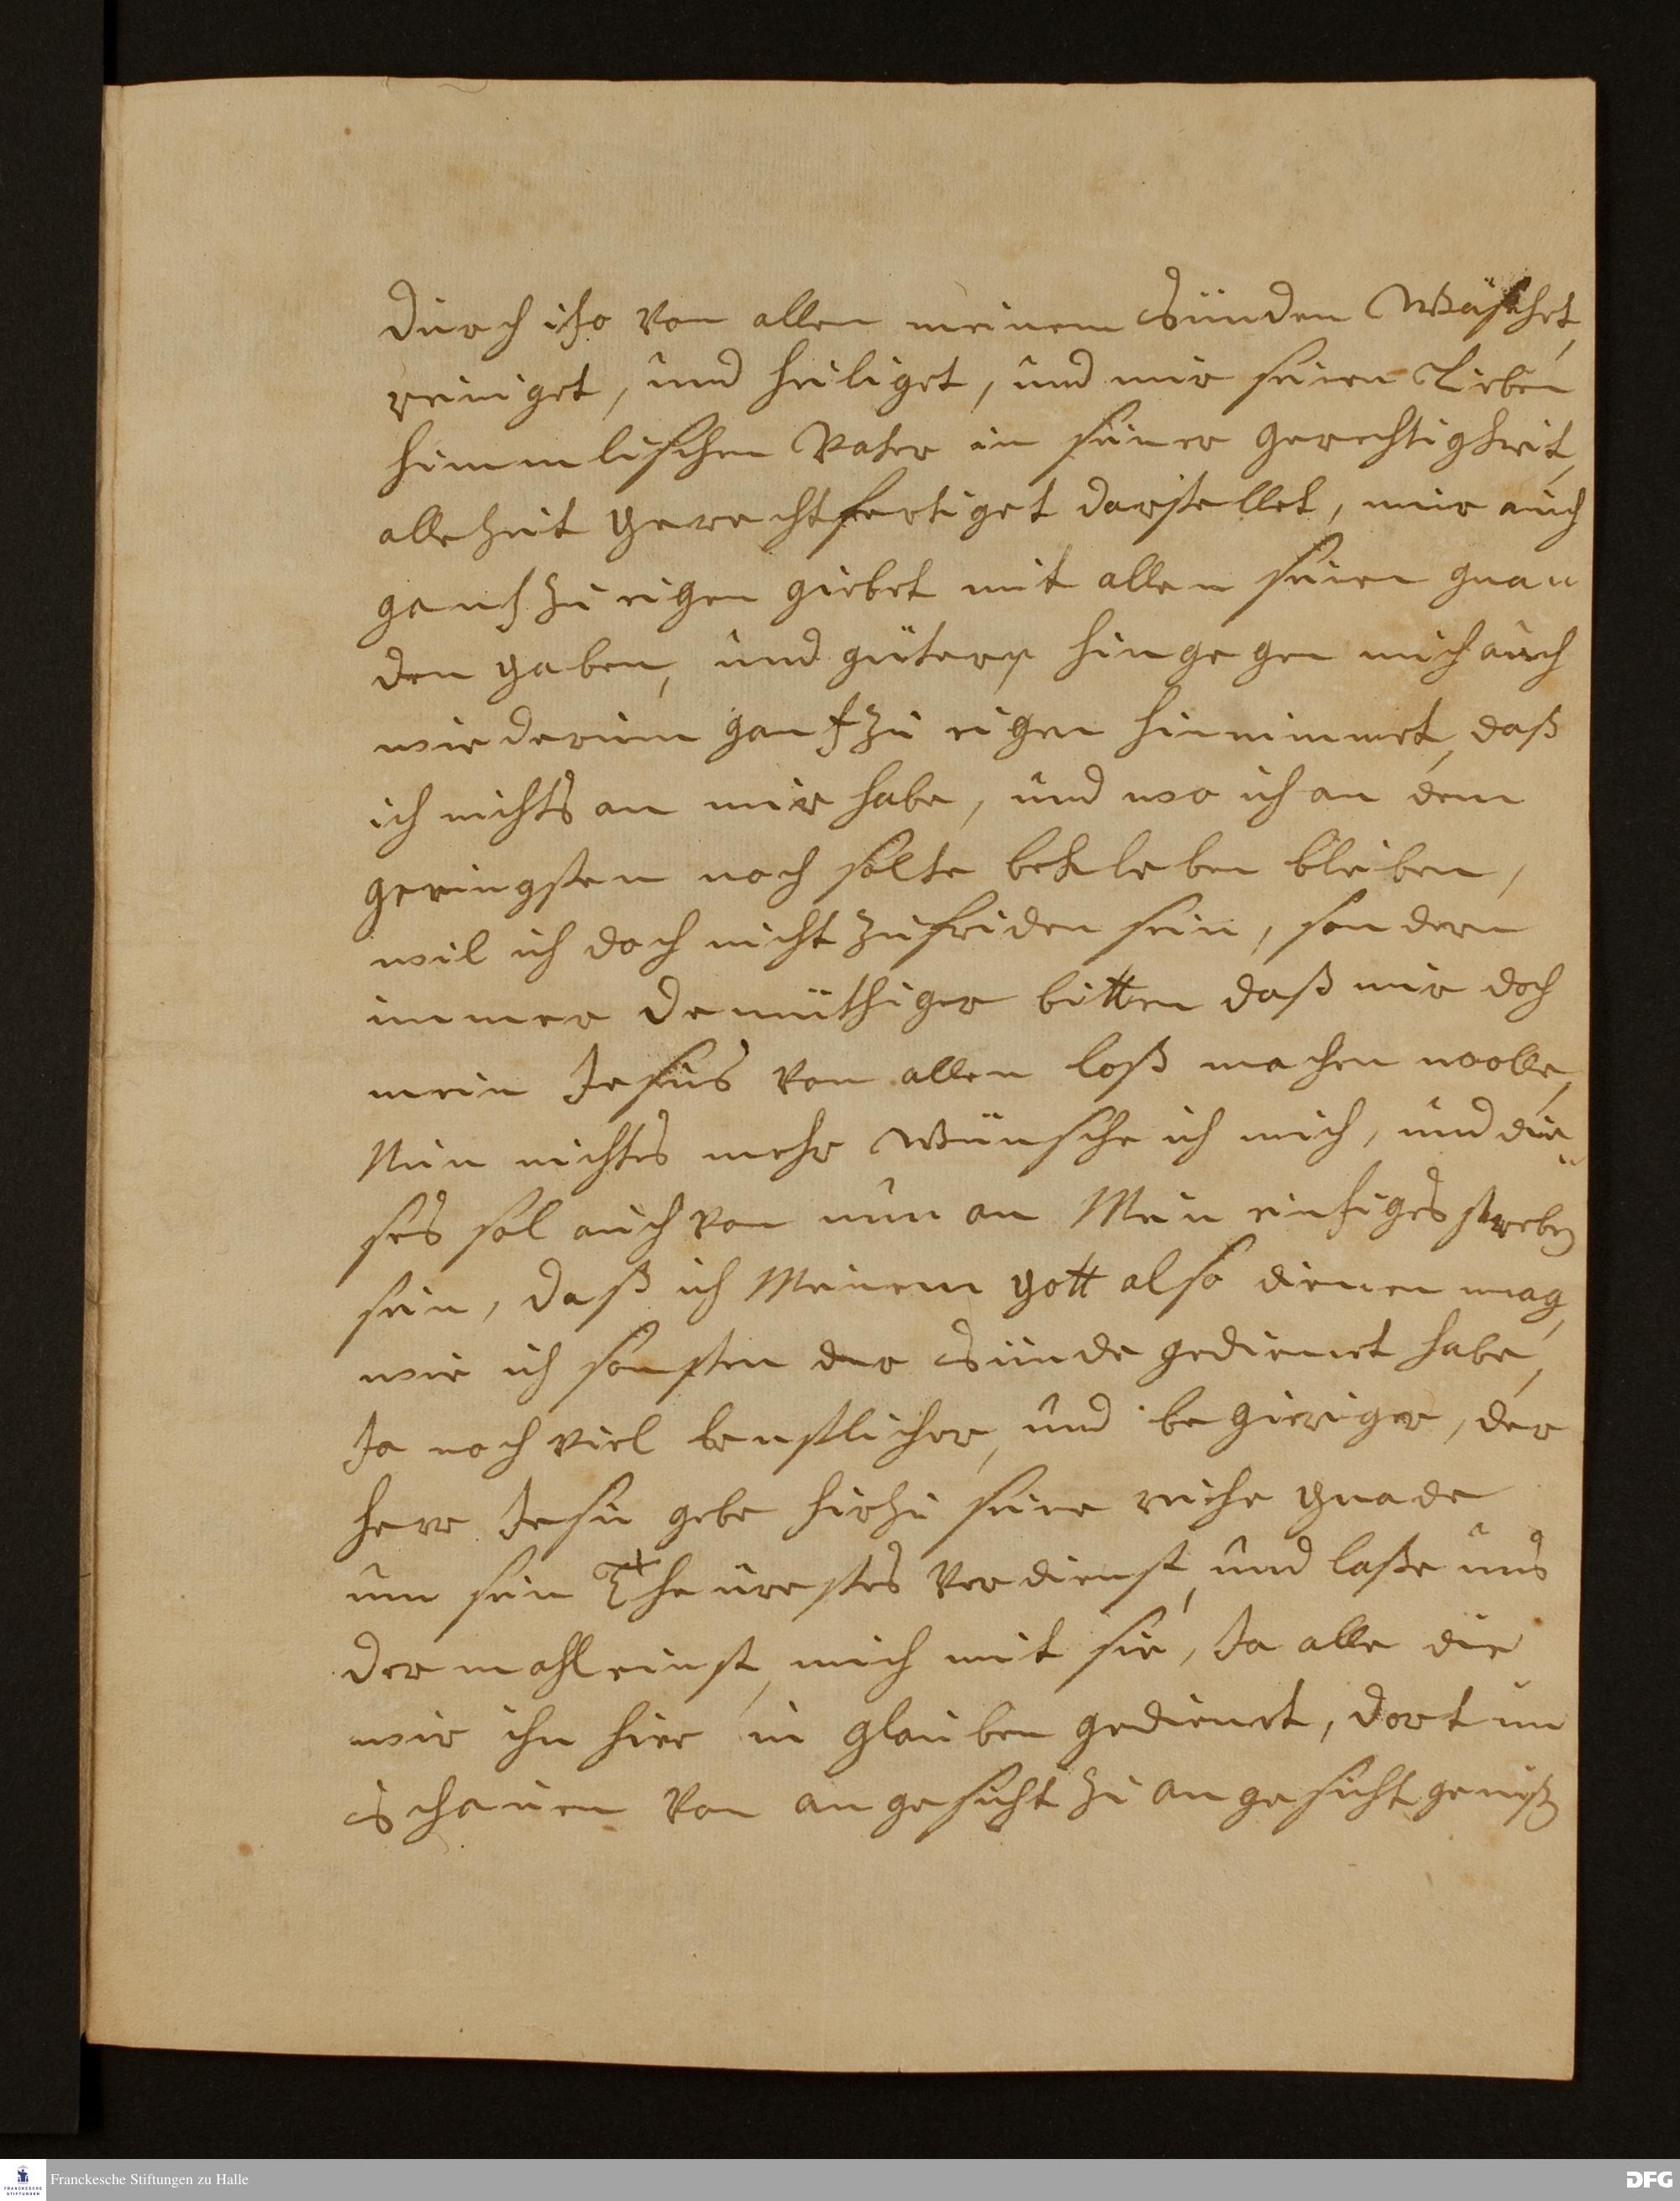 durch itzo von allen meinem Sünden Wäschet,
reiniget, und heiliget, und mir seinen Lieben
himmlischen Vater in seiner gerechtigkeit,
allezeit Gerechtfertiget darstellet, mir auch
gantz zu eigen giebet mit allen seinen gnan
den gaben, und gütern hingegen mich auch
wiederum gantz zu eigen hinnimmet, daß
ich nichts an mir habe, und wo ich an dem
geringsten noch solte bekleben bleiben,
wil ich doch nicht zufriden sein, sondern
immer demüthiger bitten daß mir doch
mein Jesus von allen loß machen woolle,
Nun nichtes mehr Wünsche ich mich, und die„
ses sol auch von nun an Mein eintziges streben
sein, daß ich Meinem Gott also dienen mag,
wie ich sonsten der Sünde gedienet habe,
Ja noch viel brustlicher, und begieriger, der
Herr Jesu gebe hirzu seine reiche Gnade
um sein Theürestes Verdienst, und laße uns
dermahleinst, mich mit sie, Ja alle die
wir ihn hier in glauben gedienet, dort im
Schauen von angesicht zu angesicht genißen
Franckesche Stiftungen zu Halle
DFG